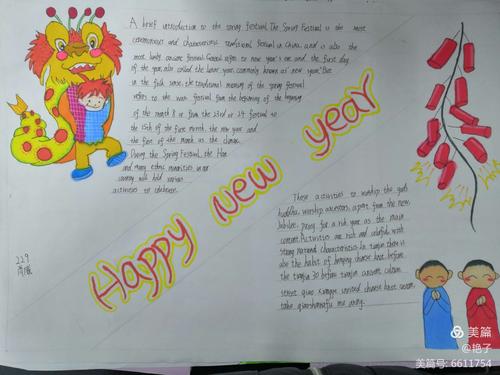 A brief introduction to the spring festival The Spring Festival is the most
ceremonious and characteristic traditional festival in China, and is also the
most lively ancient festival General refers to new year's eve and the first day
of the year, also called the lunar year, commonly known as "new year". But
in the folk sense, the traditional meaning of the spring festival
refers to the wax festival from the beginning of the beginning
of the month 8 or from the 23rd or 24 festival to
the 15th of the first month, the new year and
the first of the month as the climax.
During the Spring Festival, the Han
and many ethnic minorities in our
country will hold various
activities to celebrate.
Happy New year
These activities to worship the gods
buddha, worship ancestors, apart from the new
Jubilee, pray for a rich year as the main
content Activities are rich and colorful with
strong national characteristics. In tianjin there is
also the habit of hanging chinese knot before
the tianjin 30 before tianjin ancient culture
street qiao xiangge united chinese knot
take
229
美篇
@艳子
美篇号: 6611754